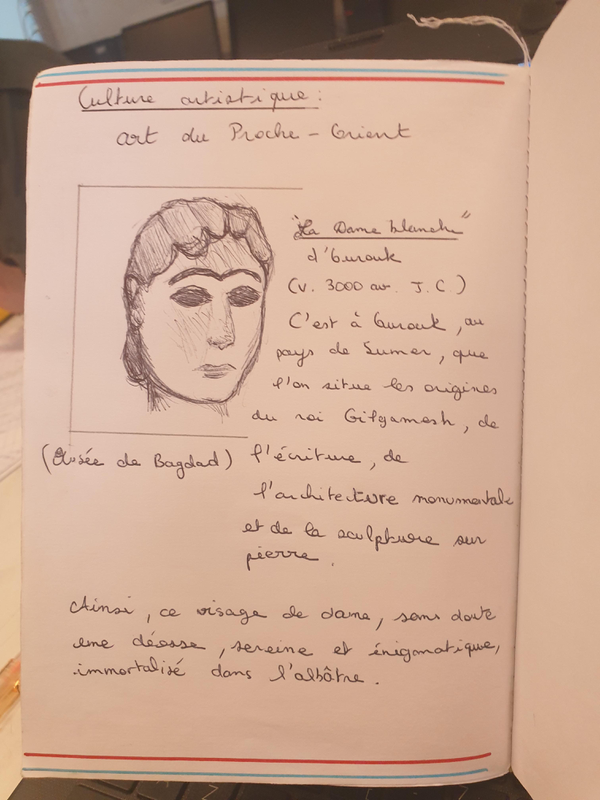 Culture artistique :
art du Proche-Orient
"La Dame blanche"
d'Ourouk
(v. 3000 av. J.C.)
C'est à Ourouk, au
pays de Sumer, que
l'on situe les origines
du roi Gilgamesh, de
(Musée de Bagdad) l'écriture, de
l'architecture monumentale
et de la sculpture sur
pierre.
Ainsi, ce visage de dame, sans doute
une déesse, sereine et énigmatique,
immortalisé dans l'albâtre.